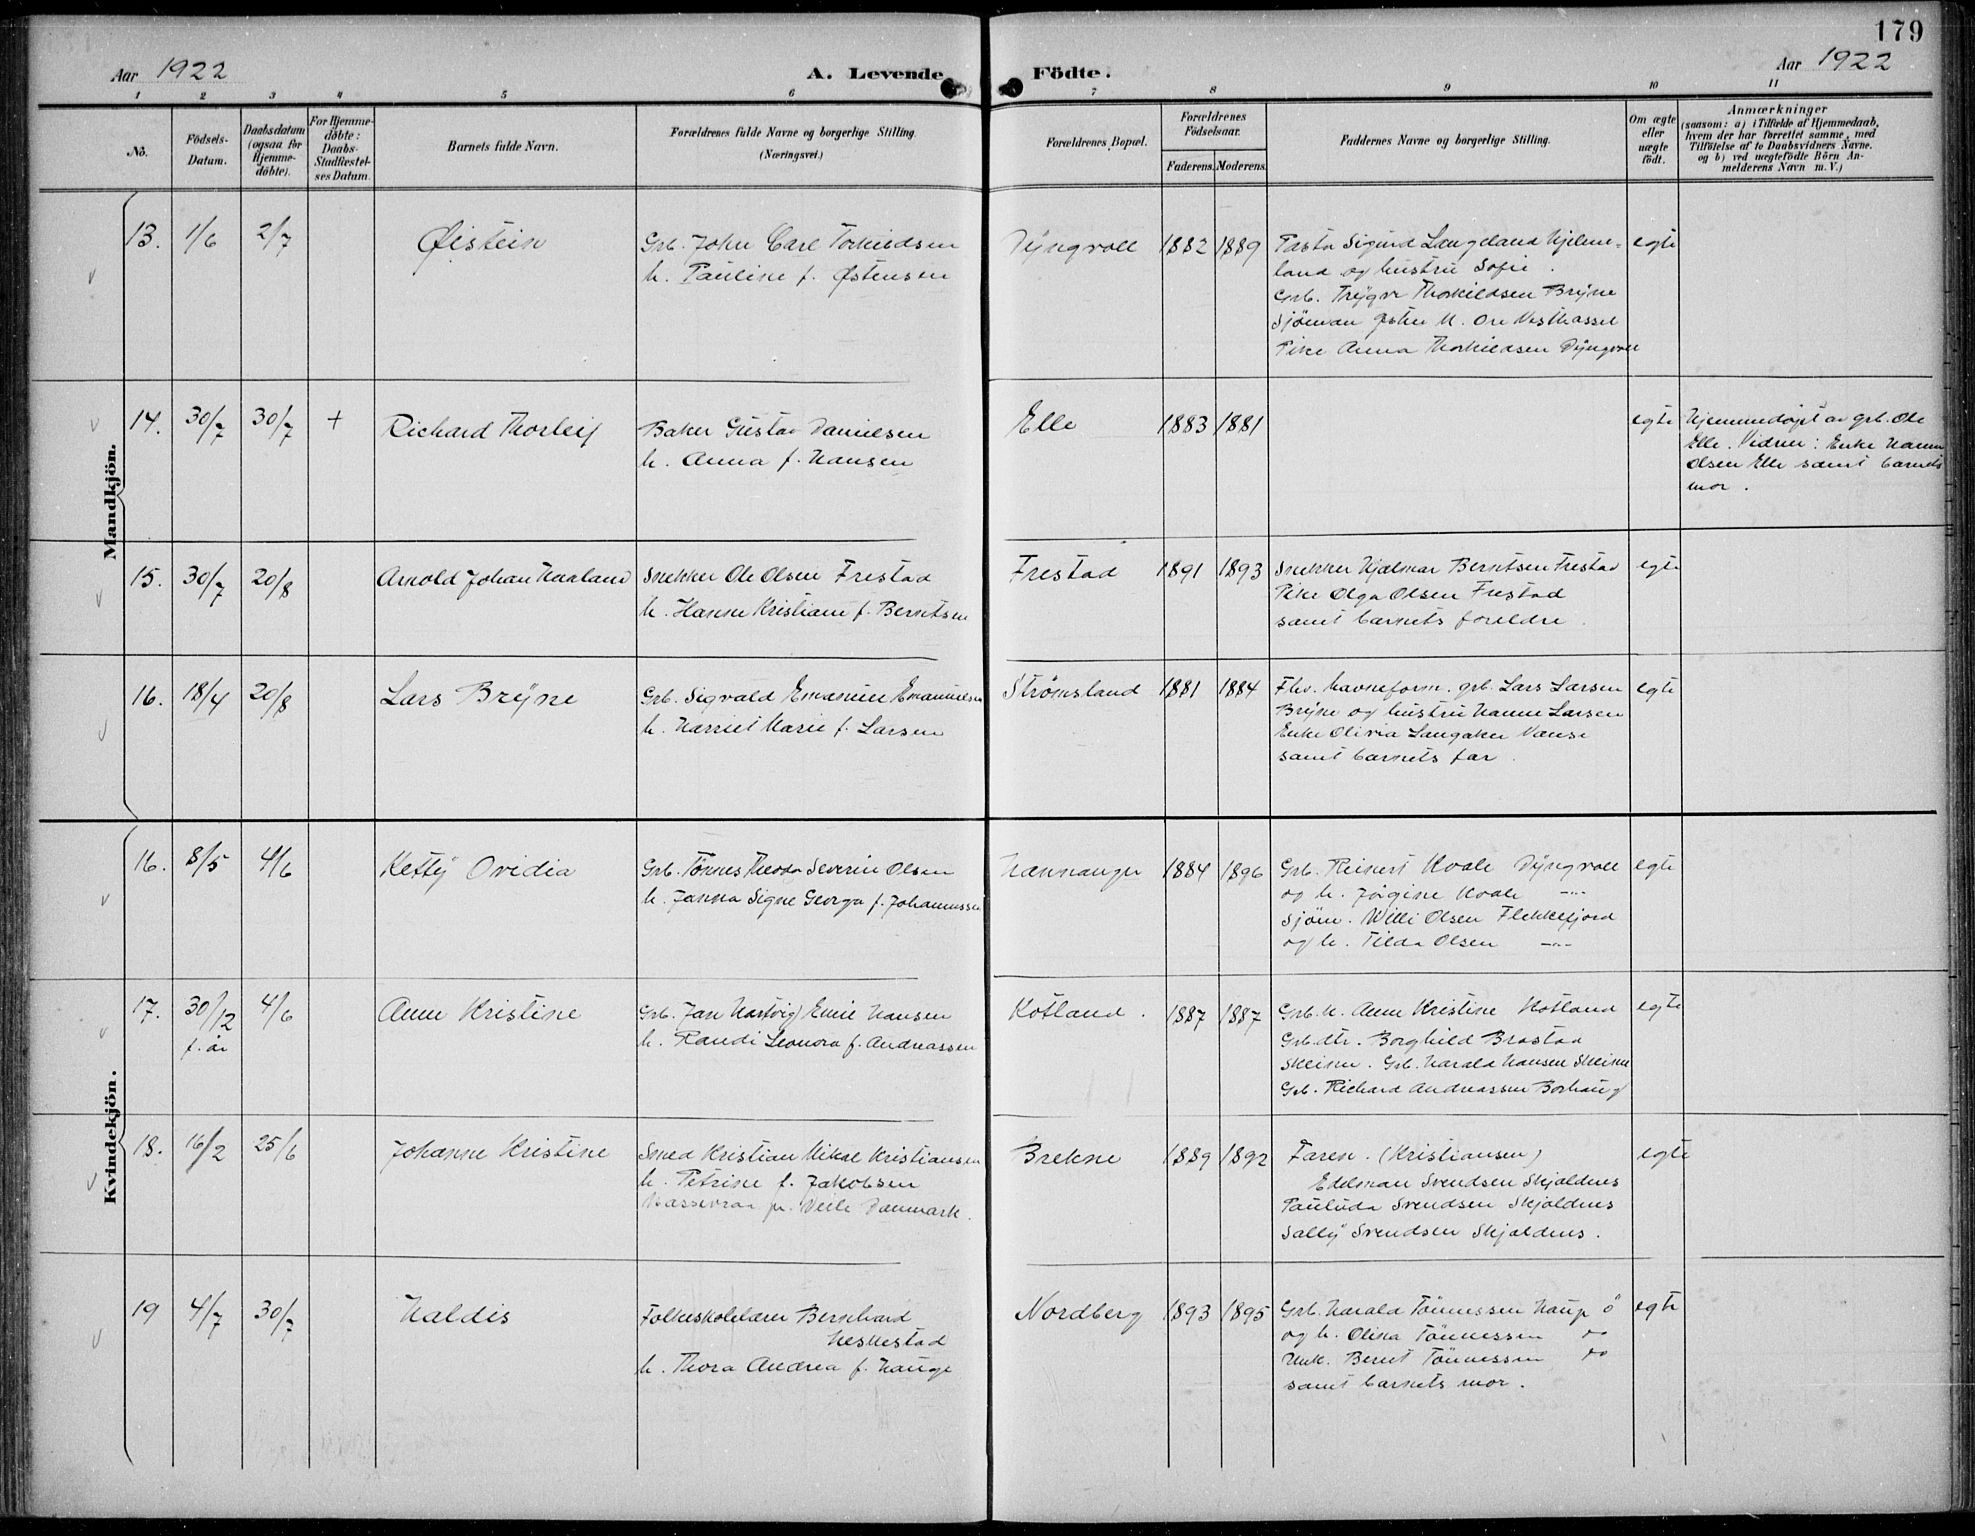 179
Aar 1922
A. Levende Födte.
Aar 1922
1 2 3 4 5 6 7 8 9 10 11
No.
Födsels-Datum.
Daabsdatum (ogsaa for Hjemmedöbte).
For Hjemmedöbte: Daabs-Stadfæstelses Datum.
Barnets fulde Navn.
Forældrenes fulde Navne og borgerlige Stilling.
(Næringsvei.)
Forældrenes Bopæl.
Forældrenes Födselsaar.
Faderens. Moderens.
Faddernes Navne og borgerlige Stilling.
Om ægte eller uægte födt.
Anmærkninger
(saasom: a) i Tilfælde af Hjemmedaab,
hvem der har forrettet samme, med
Tilföielse af to Daabsvidners Navne.
og b) ved uægtefödte Börn An-
melderens Navn m. V.)
Mandkjön.
13. 1/6 2/7 Øistein
Grb. John Carl Torkildsen
h. Pauline f. Østensen
Dyngvoll 1882 1889
Sigurd Langeland Hjelme-
land og hustru Sofie.
Grb. Trygve Thorkildsen Bryne
Sjöman Østen M. Ore Vesthassel
Pike Anna Thorkildsen Dyngvoll
egte
14. 30/7 30/7 + Richard Thorleif
Baker Gustav Danielsen
h. Anna f. Hansen
Elle 1883 1881
egte
Hjemmedøpt av grb. Ole
Elle. Vidner: Enke Hanne
Olsen Elle samt barnets
mor.
15. 30/7 20/8 Arnold Johan Haaland
Snekker Ole Olsen Frestad
h. Hanne Kristiane f. Berntsen
Frestad 1891 1893
Snekker Hjalmar Berntsen Frestad
Pike Olga Olsen Frestad
samt barnets foreldre.
egte
16. 18/4 20/8 Lars Bryne
Grb. Sigvald Emanuel Emanuelsen
h. Harriet Marie f. Larsen
Strømsland 1881 1884
Fhv. havneform. grb. Lars Larsen
Bryne og hustru Hanne Larsen
Enke Olivia Langaker Vanse
samt barnets far.
egte
Kvindekjön.
16. 8/5 4/6 Ketty Ovidia
Grb. Tönnes Theodor Severin Olsen
h. Janna Signe Georga f. Johannessen
Hannanger 1884 1896
Grb. Reinert Hvale Dyngvoll
og h. Jörgine Hvale -"-
Sjöm. Willi Olsen Flekkefjord
og h. Tilda Olsen -"-
egte
17. 30/12 f. år 4/6 Anne Kristine
Grb. Jan Hartvig Emil Hansen
h. Randi Leonora f. Andreassen
Kotland. 1887 1887
Grb. k. Anne Kristine Kotland
Grb. dtr. Borghild Brastad
Skeime. Grb. Harald Hansen Skeime
Grb. Richard Andreassen Borhaug
egte
18. 16/2 25/6 Johanne Kristine
Smed Kristian Mikal Kristiansen
h. Petrine f. Jakobsen
pr. Veile Danmark.
Brekne 1889 1892
Faren. (Kristiansen)
Edelman Svendsen Skjoldnes
Paulida Svendsen Skjoldnes
Sally Svendsen Skjoldnes.
egte
19 4/7 30/7 Haldis
Folkeskolelærer Bernhard
Heskestad
h. Thora Andrea f. Hauge
Nordberg 1893 1895
Grb. Harald Tönnessen Haugö
og h. Olina Tönnessen do
Unk. Bernt Tönnessen do
samt barnets mor.
egte